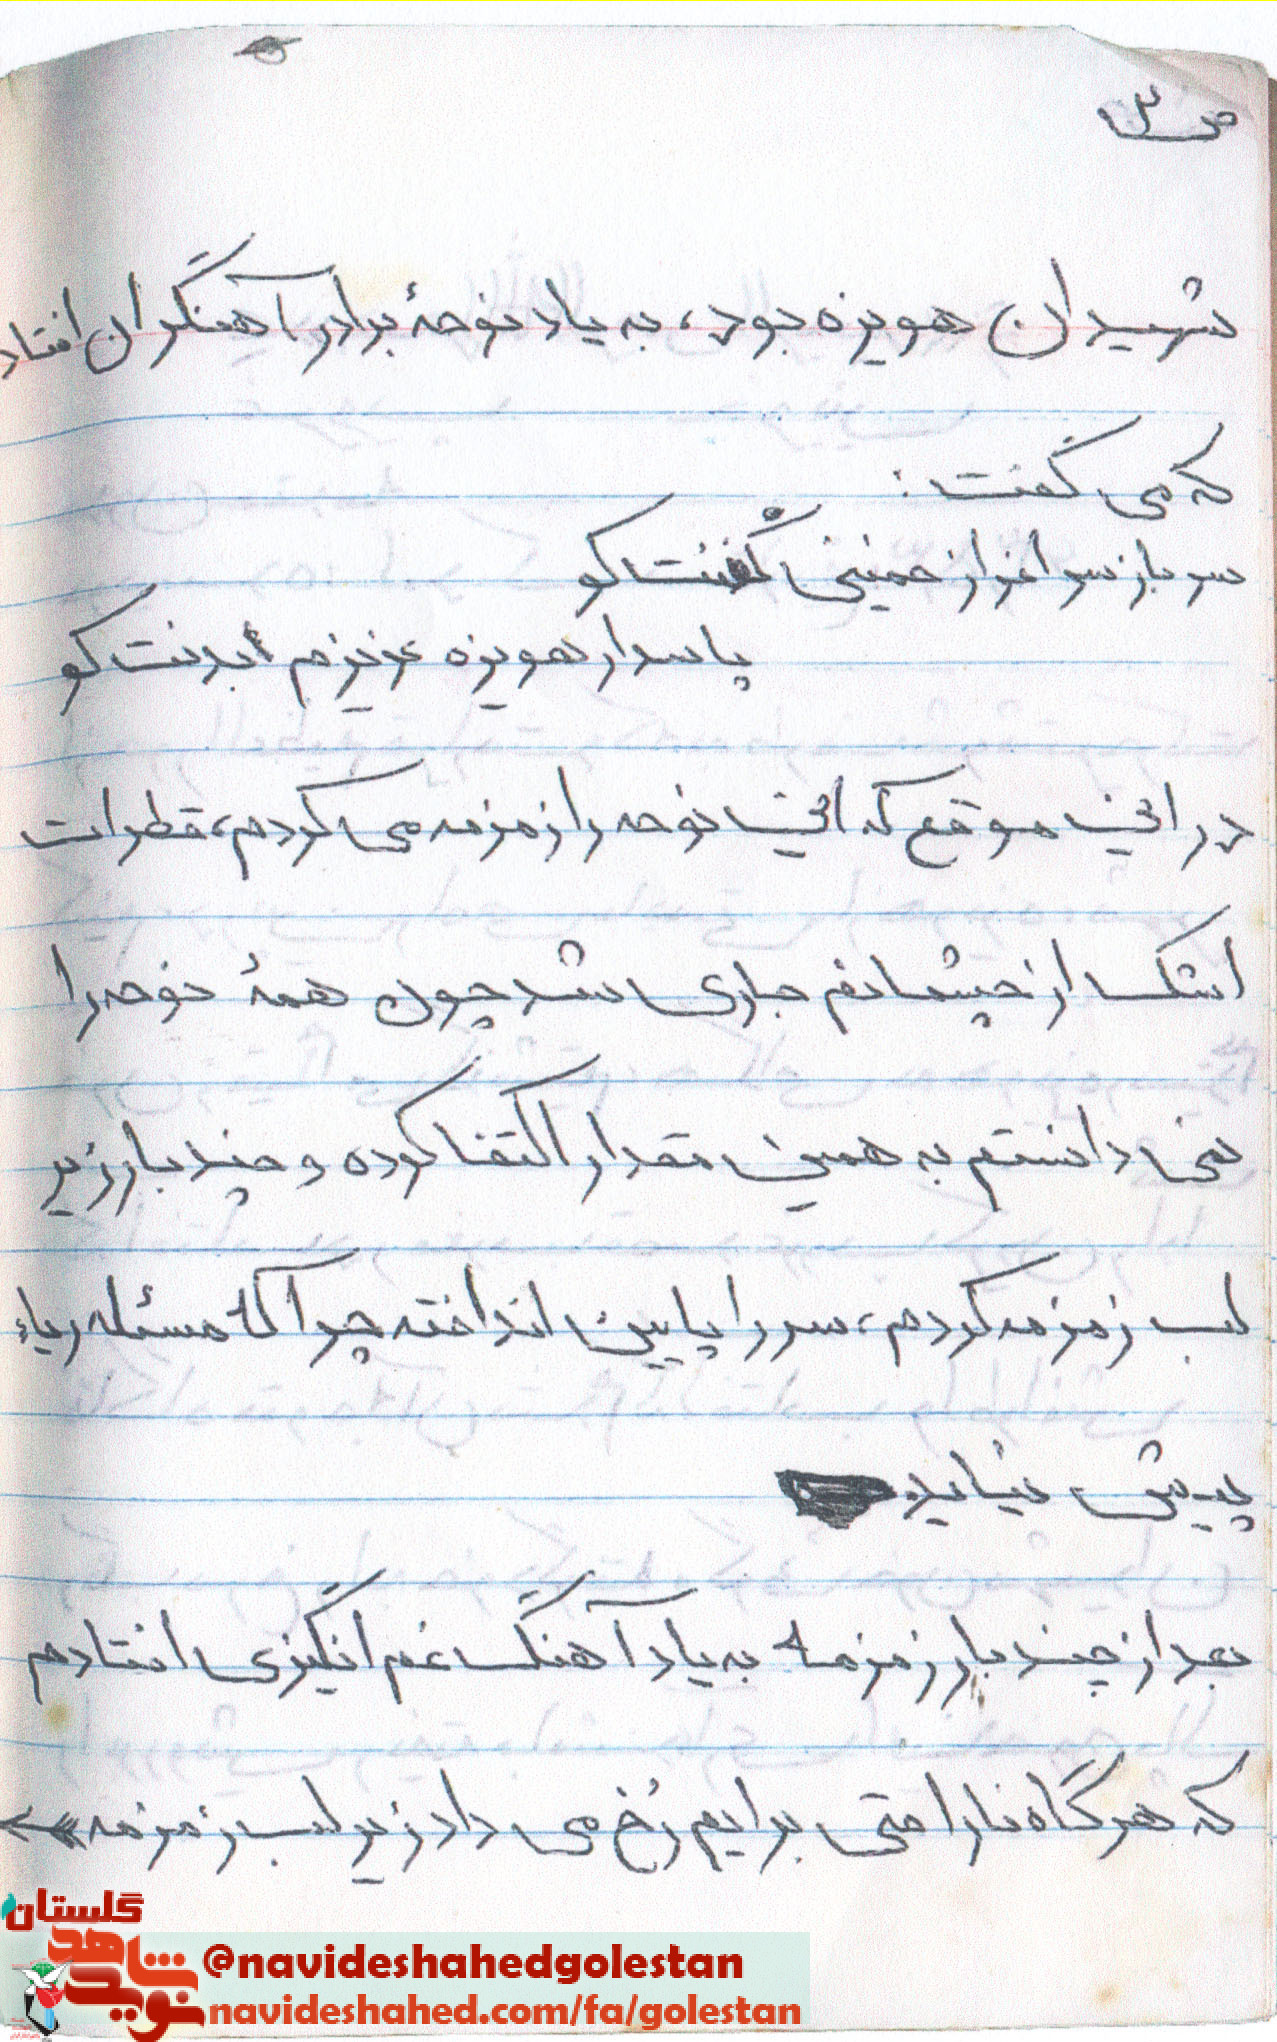 ص ۳
شهیدان هویزه بود، به یاد نوحهٔ برادر آهنگران افتاد
که می گفت:
سرباز سرافراز خمینی گفتنت کو
پاسدار هویزه عزیزم بدنت کو
در این موقع که این نوحه را زمزمه می کردم، قطرات
اشک از چشمانم جاری شد چون همهٔ نوحه را
نمی دانستم به همین مقدار اکتفا کرده و چند بار زیر
لب زمزمه کردم، سر را پایین انداخته چرا که مسئله ریاء
پیش نیاید.
بعد از چند بار زمزمه به یاد آهنگ غم انگیزی افتادم
که هرگاه ناراحتی برایم رُخ می داد زیر لب زمزمه
گلستان
نوید شاهد
@navideshahedgolestan
navideshahed.com/fa/golestan